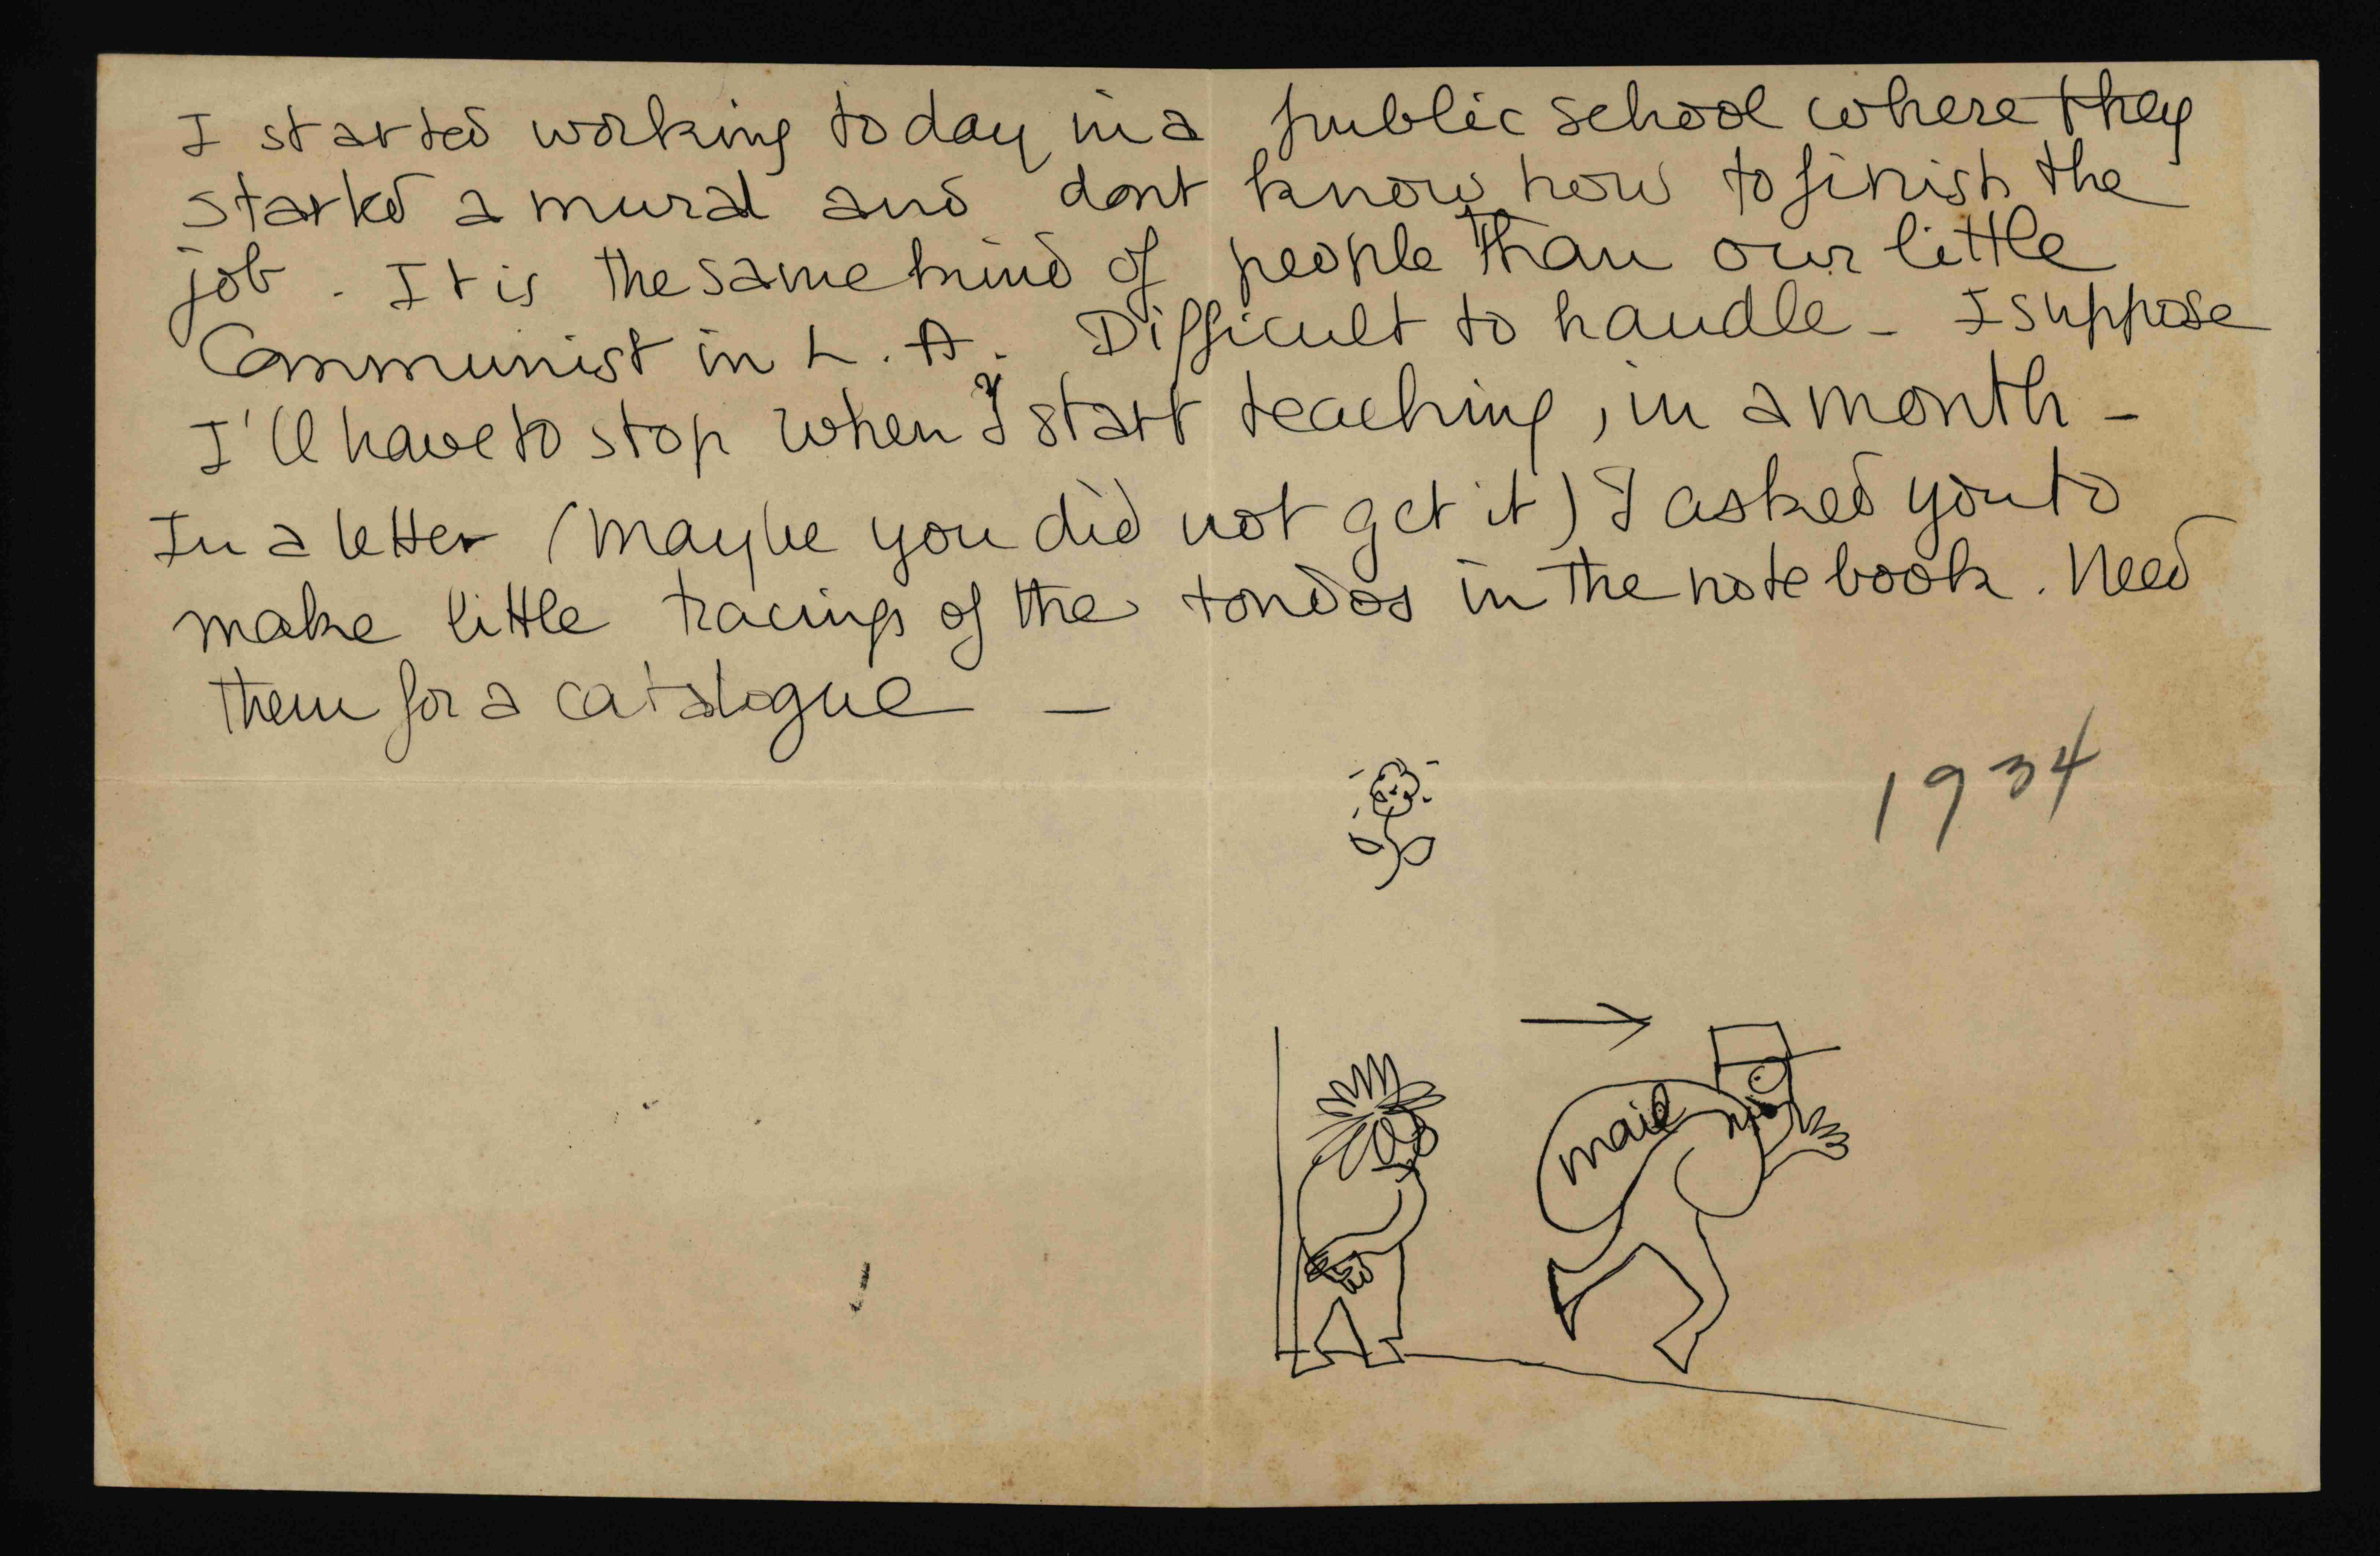 I started working today in a public school where they
started a mural and dont know how to finish the
job. It is the same kind of people than our little
Communist in L.A. Difficult to handle - I suppose
I'll have to stop when I start teaching, in a month -
In a letter (maybe you did not get it) I asked you to
make little tracings of the tondos in the notebook. Need
them for a catalogue -
1934
mail